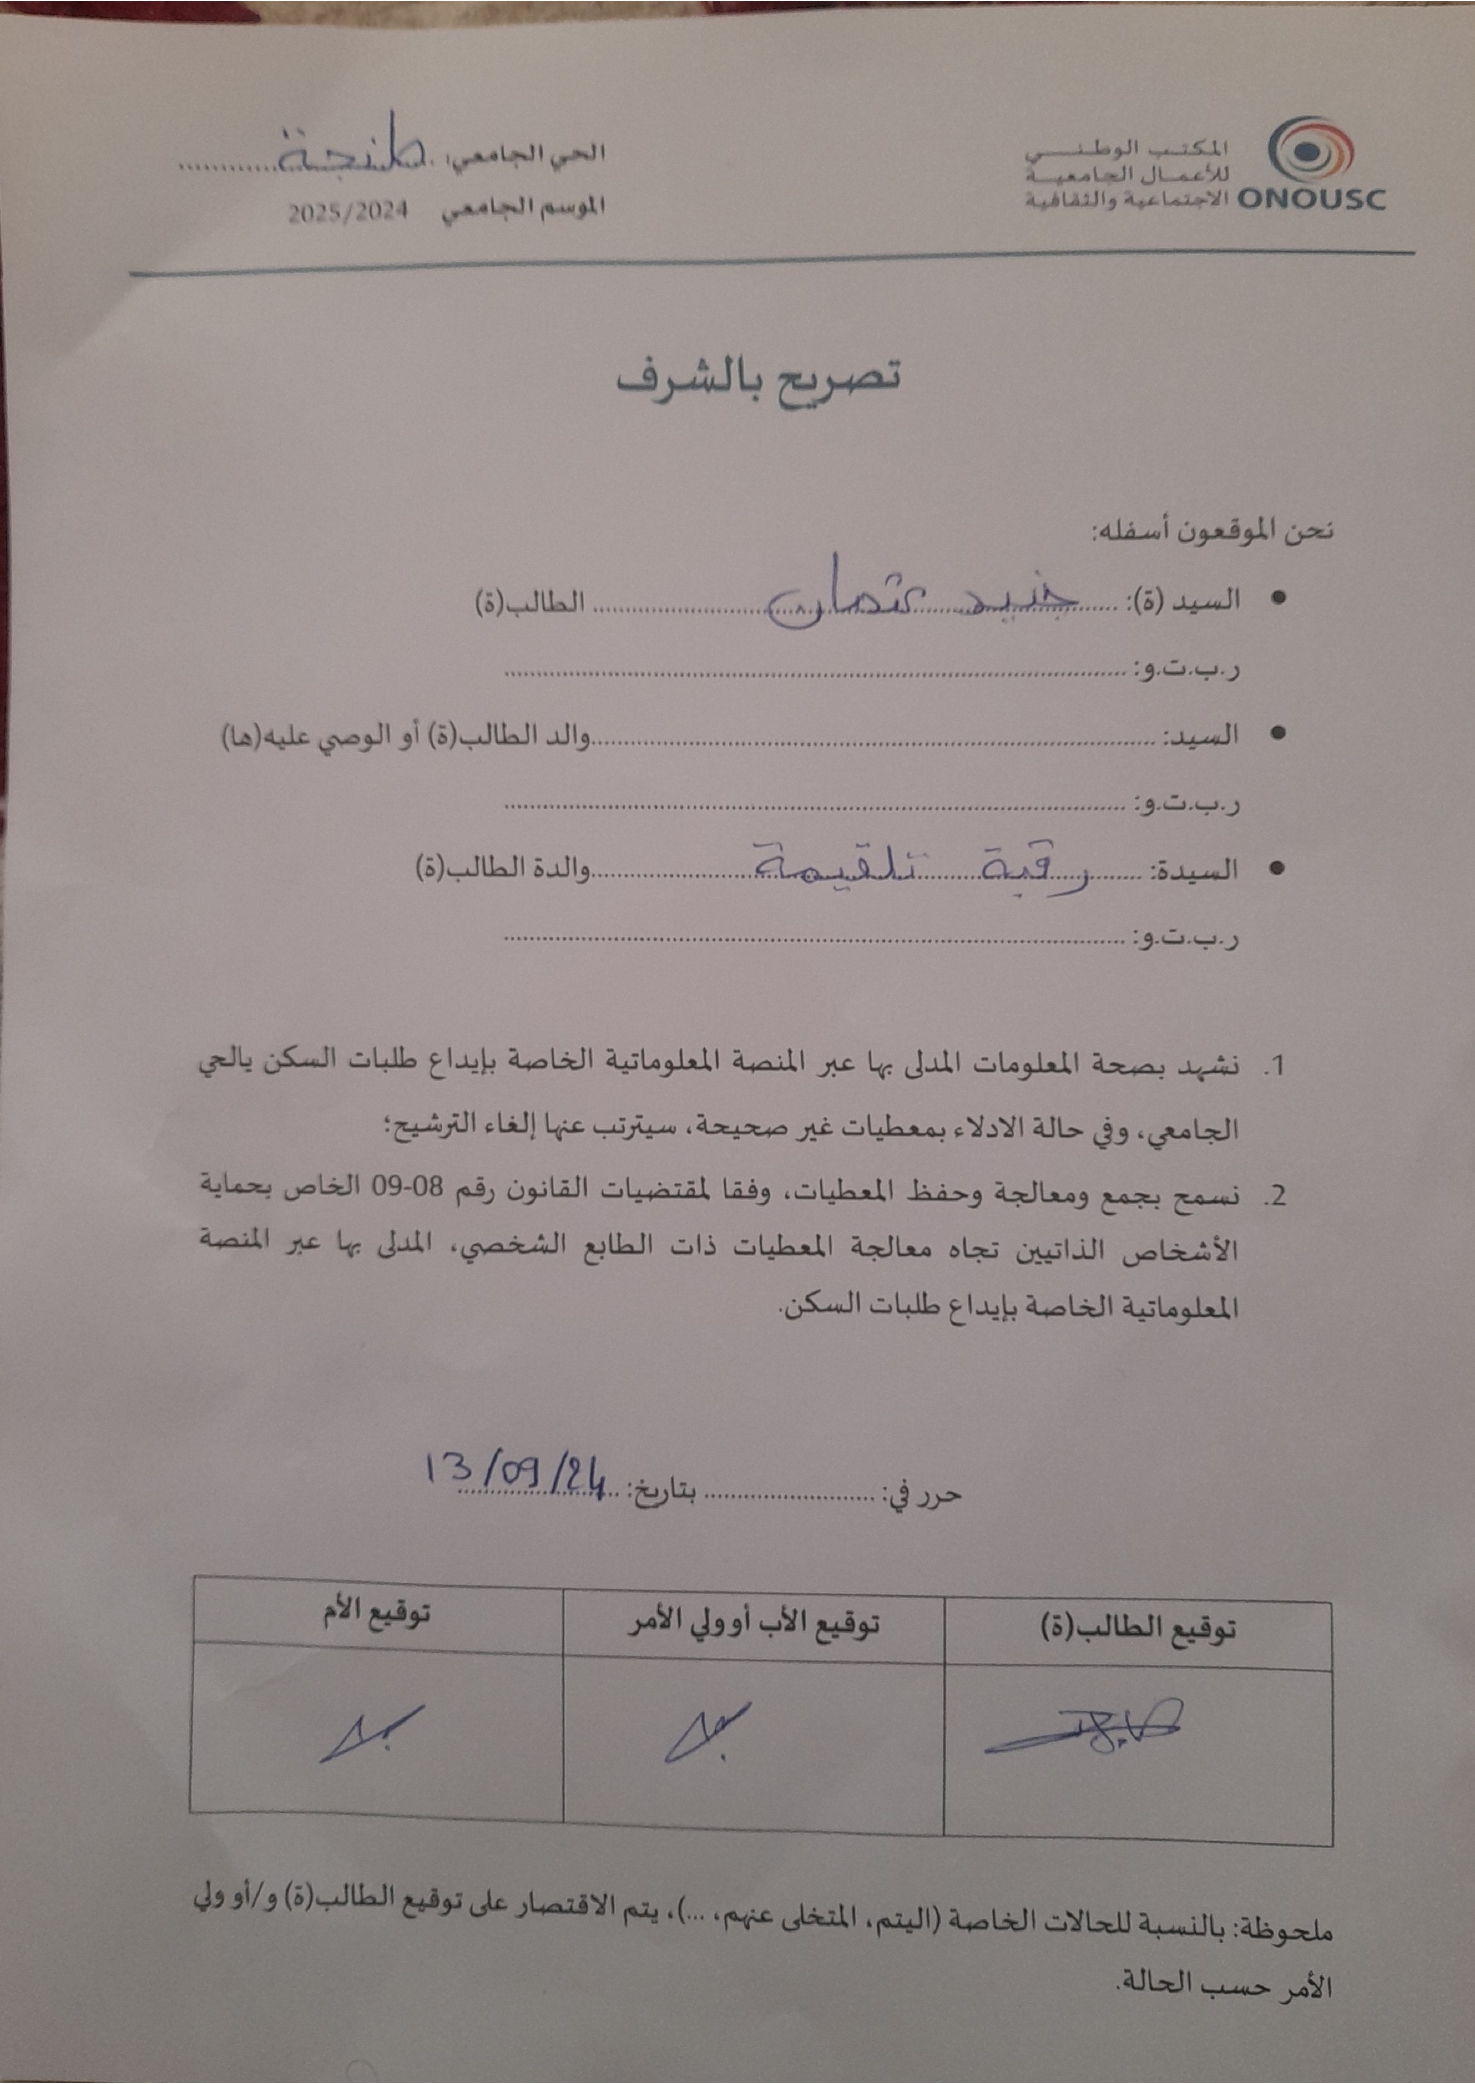 المكتب الوطني
للأعمال الجامعية
الاجتماعية والثقافية
ONOUSC
الحي الجامعي: طنجة
الموسم الجامعي 2025/2024
تصريح بالشرف
نحن الموقعون أسفله:
• السيد (ة): جنيد عثمان الطالب(ة)
ر.ب.ت.و:
• السيد: والد الطالب(ة) أو الوصي عليه(ها)
ر.ب.ت.و:
• السيدة: رقية تلقيمة والدة الطالب(ة)
ر.ب.ت.و:
1. نشهد بصحة المعلومات المدلى بها عبر المنصة المعلوماتية الخاصة بإيداع طلبات السكن يالحي
الجامعي، وفي حالة الادلاء بمعطيات غير صحيحة، سيترتب عنها إلغاء الترشيح؛
2. نسمح بجمع ومعالجة وحفظ المعطيات، وفقا لمقتضيات القانون رقم 08-09 الخاص بحماية
الأشخاص الذاتيين تجاه معالجة المعطيات ذات الطابع الشخصي، المدلى بها عبر المنصة
المعلوماتية الخاصة بإيداع طلبات السكن.
حرر في: بتاريخ: 13/09/24
توقيع الطالب(ة) توقيع الأب أو ولي الأمر توقيع الأم
ملحوظة: بالنسبة للحالات الخاصة (اليتم، المتخلى عنهم، ...)، يتم الاقتصار على توقيع الطالب(ة) و/أو ولي
الأمر حسب الحالة.